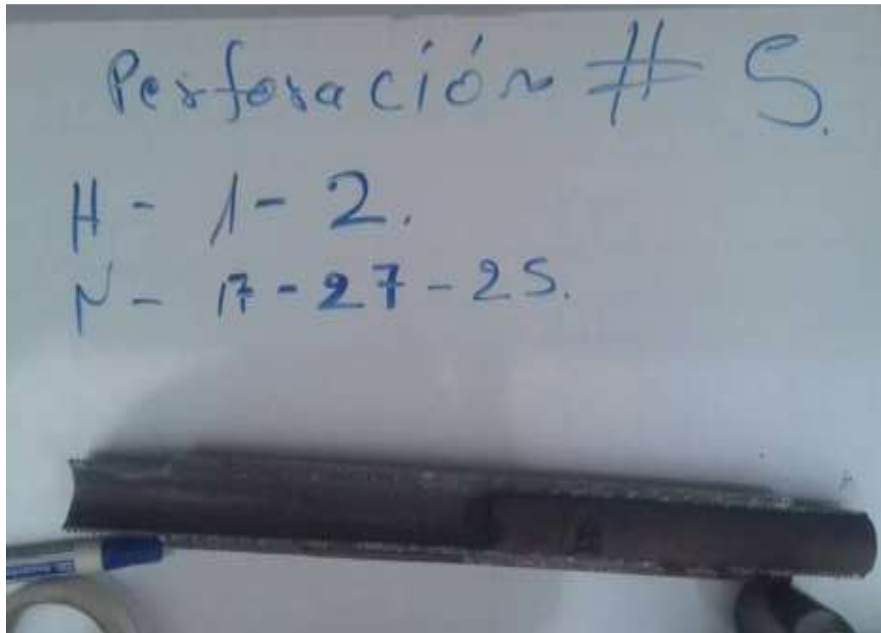 Perforación # 5.
H - 1 - 2.
N - 17 - 27 - 25.